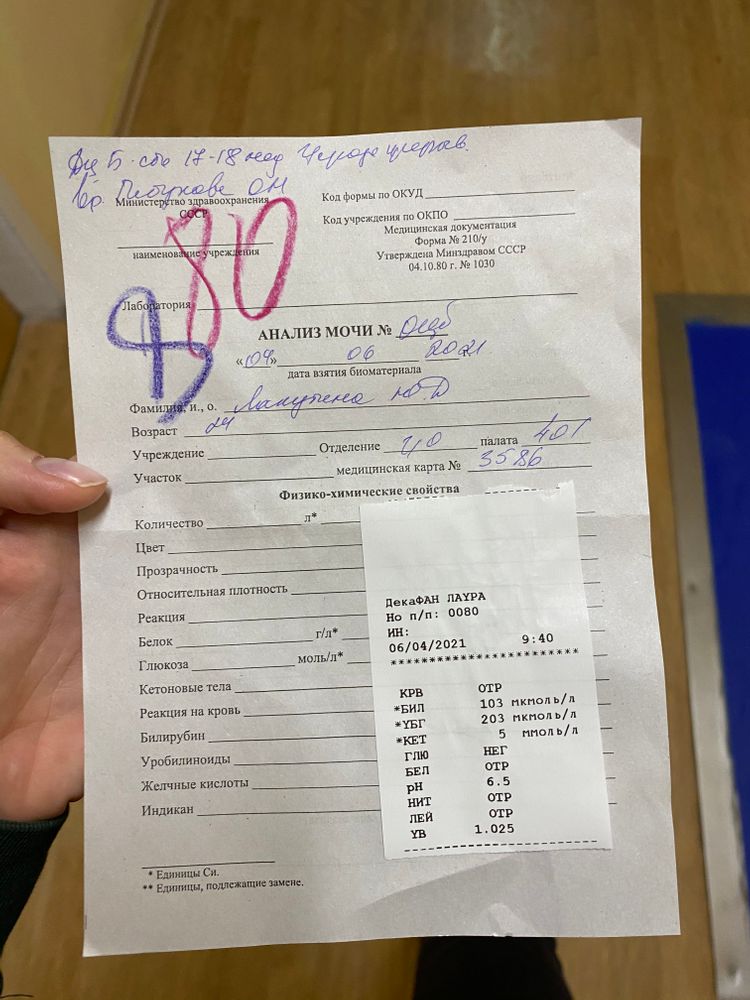 17-18 нед
Министерство здравоохранения
СССР
наименование учреждения
Код формы по ОКУД
Код учреждения по ОКПО
Медицинская документация
Форма № 210/у
Утверждена Минздравом СССР
04.10.80 г. № 1030
80
Лаборатория
АНАЛИЗ МОЧИ №
« » 06 2021 г.
дата взятия биоматериала
Фамилия, и., о.
Возраст 24
Учреждение Отделение палата 401
Участок медицинская карта № 3586
Физико-химические свойства
Количество л*
Цвет
Прозрачность
Относительная плотность
Реакция
Белок г/л*
Глюкоза моль/л*
Кетоновые тела
Реакция на кровь
Билирубин
Уробилиноиды
Желчные кислоты
Индикан
* Единицы Си.
** Единицы, подлежащие замене.
ДекаФАН ЛАУРА
Но п/п: 0080
ИН:
06/04/2021 9:40
***********************
КРВ ОТР
*БИЛ 103 мкмоль/л
*УБГ 203 мкмоль/л
*КЕТ 5 ммоль/л
ГЛЮ НЕГ
БЕЛ ОТР
pH 6.5
НИТ ОТР
ЛЕЙ ОТР
УВ 1.025